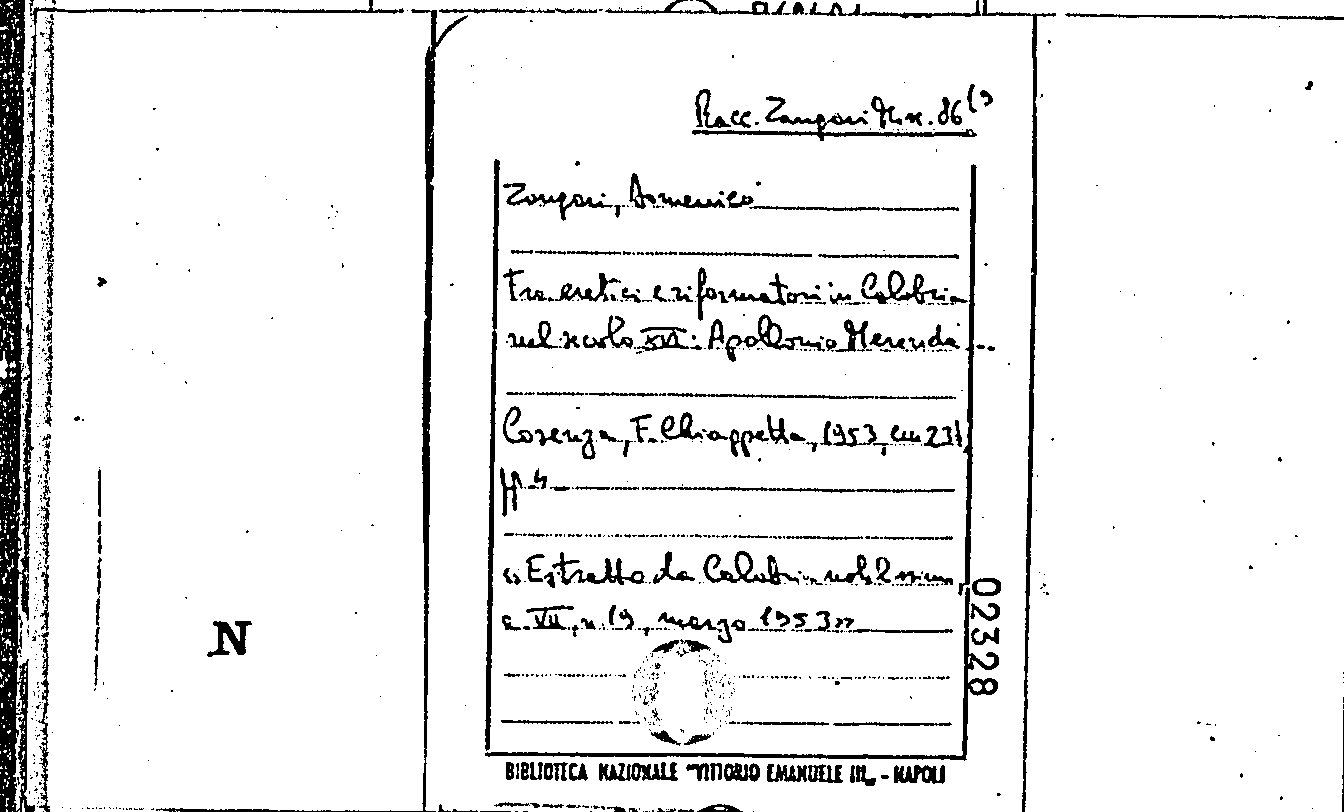 Racc. Zangari Misc. 86 (9
Zangari, Domenico
Fra eretici e riformatori in Calabria
nel secolo XVI: Apollonio Merenda ...
Cosenza, F. Chiappetta, 1953, cm 23,
pp. 4
«Estratto da Calabria nobilissima,
a. VII, n. 19, marzo 1953»
02328
N
BIBLIOTECA NAZIONALE "VITTORIO EMANUELE III„ - NAPOLI